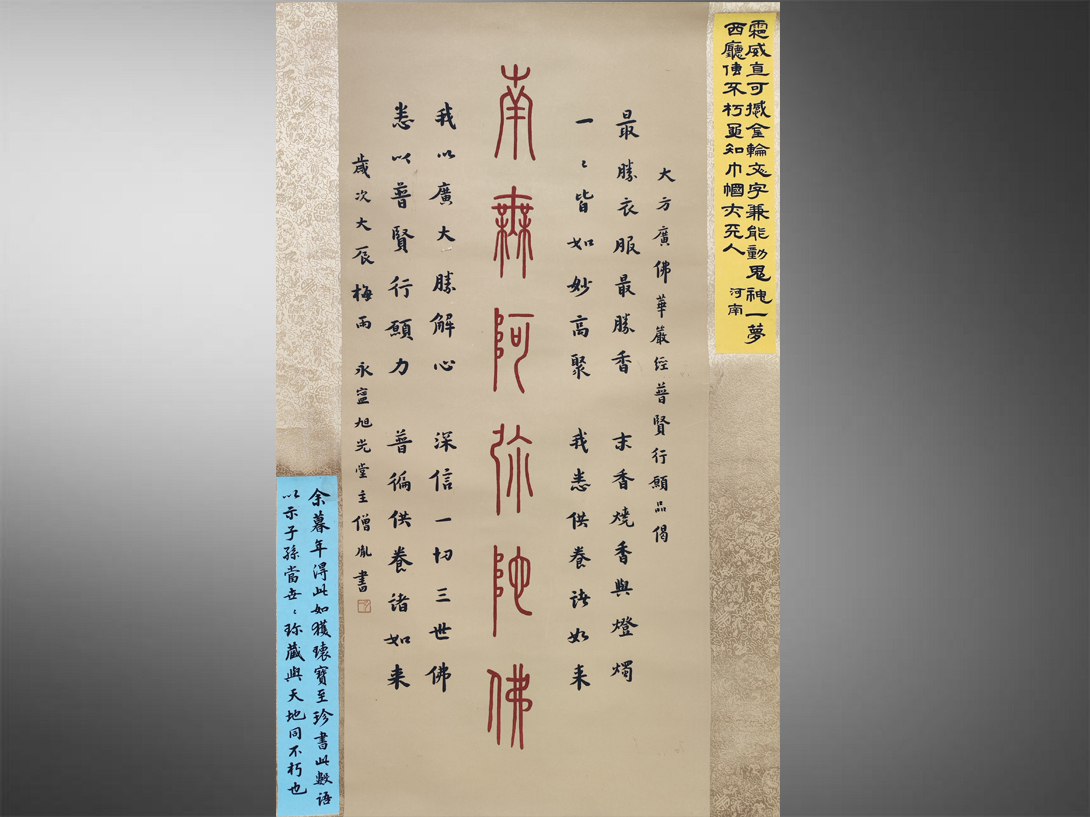 霜威直可撼金輪文字兼能動鬼神一夢
西廳傳不朽知巾幗死人
河南
大方廣佛華嚴经普賢行願品偈
最勝衣服最勝香 末香燒香與燈燭
一〻皆如妙高聚 我悉供養諸如来
南無阿弥陀佛
我以廣大勝解心 深信一切三世佛
悉以普賢行願力 普徧供養諸如来
歲次大辰梅雨 永寧旭光堂主僧胤書
余暮年得此如獲瓌寶至珍書此數語
以示子孫當世〻珎藏與天地同不朽也